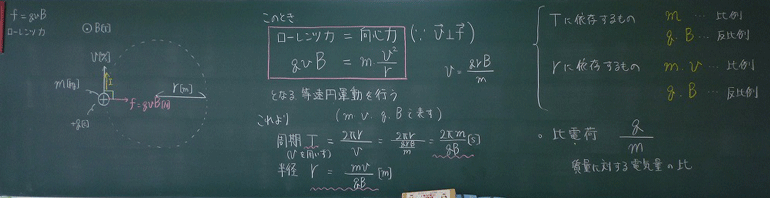 f = qvB
ローレンツ力
⊙ B[T]
v[m/s]
I
m[kg]
+q[C]
f = qvB[N]
r[m]
このとき
ローレンツ力 = 向心力 (∵ v⃗⊥f⃗)
qvB = m v²/r
v = qrB/m
となる等速円運動を行う
これより (m v q B で表す)
周期 T = 2πr/v = 2πr/(qrB/m) = 2πm/qB [s]
(vを用いず)
半径 r = mv/qB [m]
Tに依存するもの m … 比例
q.B … 反比例
rに依存するもの m.v … 比例
q.B … 反比例
○ 比電荷 q/m
質量に対する電気量の比